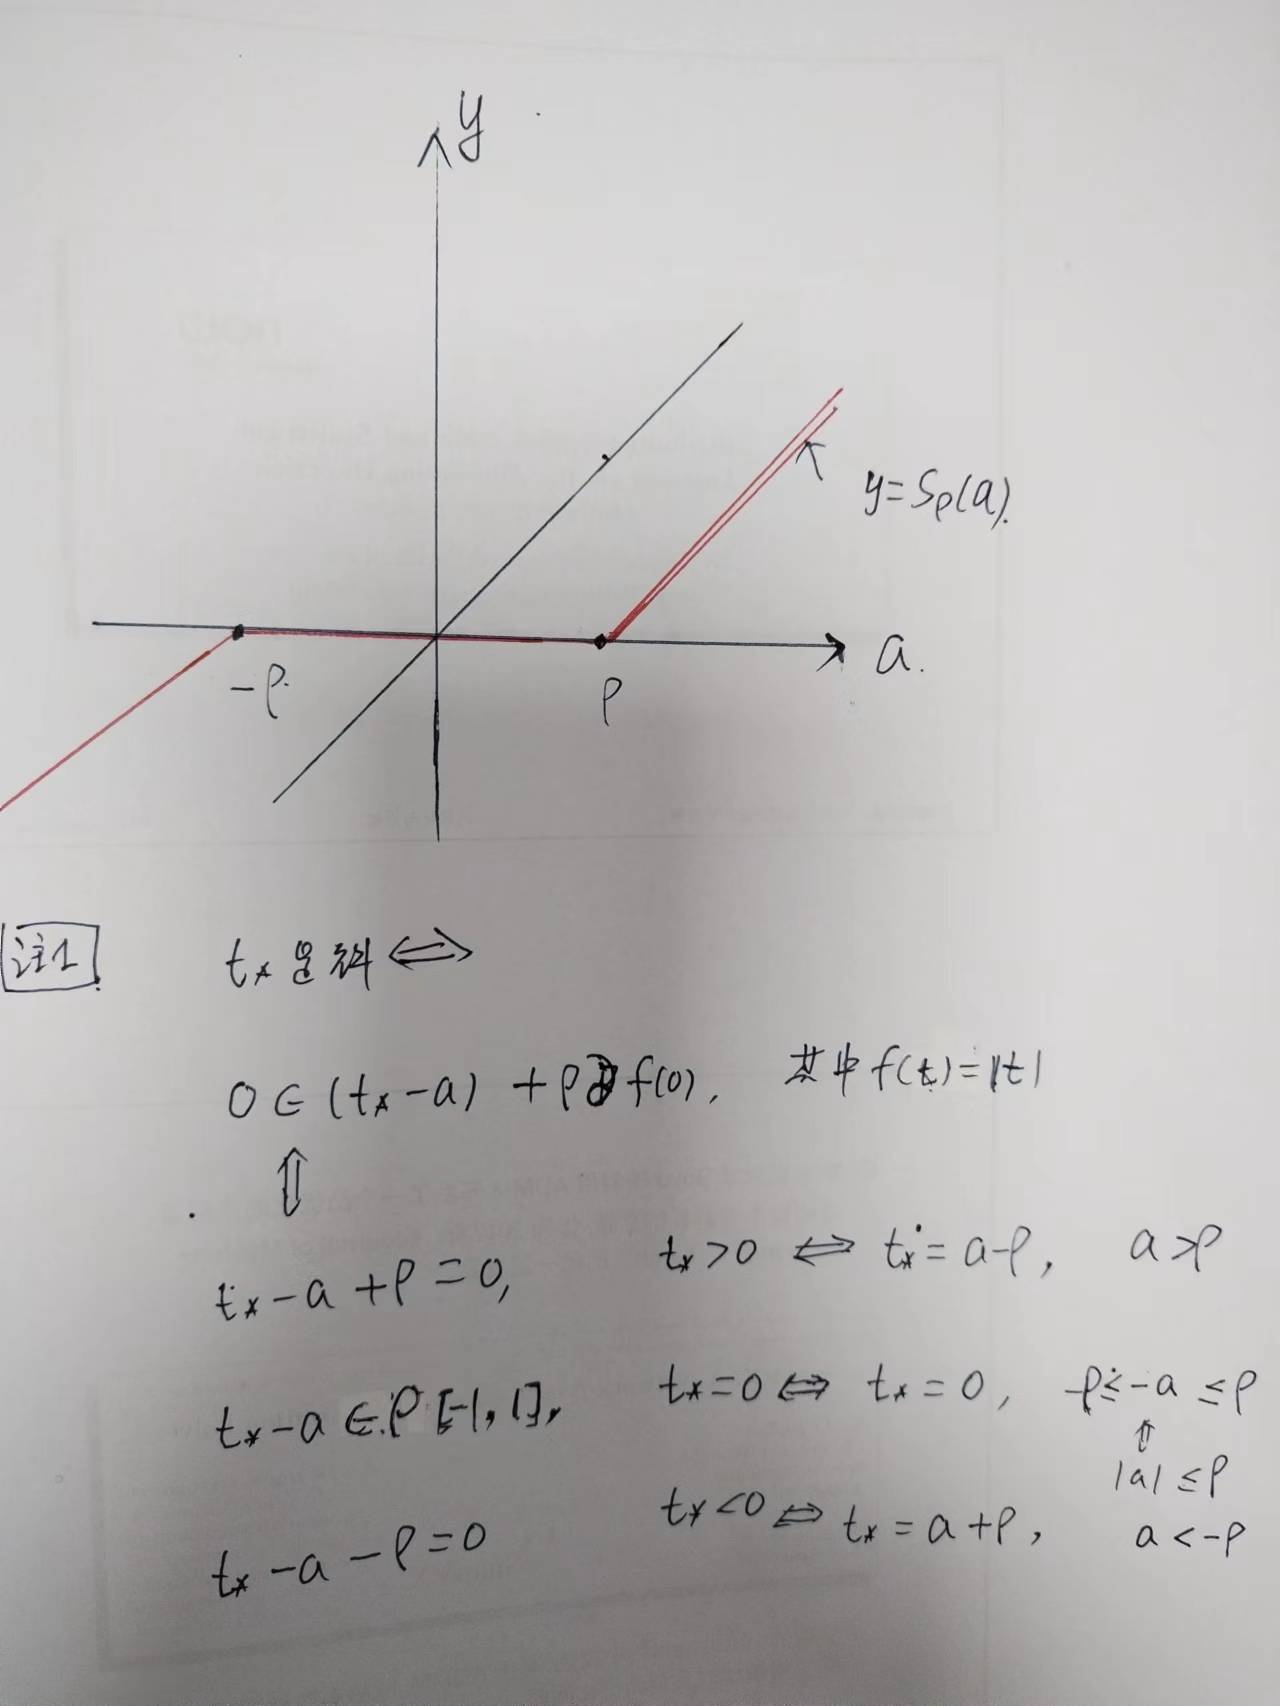 y
y=Sρ(a).
a.
-ρ.
ρ
注1.
t* 是解 ⇔
0 ∈ (t*-a) + ρ∂f(0), 其中 f(t)=|t|
⇕
t*-a+ρ=0, t*>0 ⇔ t*=a-ρ, a>ρ
t*-a ∈ ρ[-1,1], t*=0 ⇔ t*=0, -ρ≤-a≤ρ
⇕
|a|≤ρ
t*-a-ρ=0 t*<0 ⇔ t*=a+ρ, a<-ρ